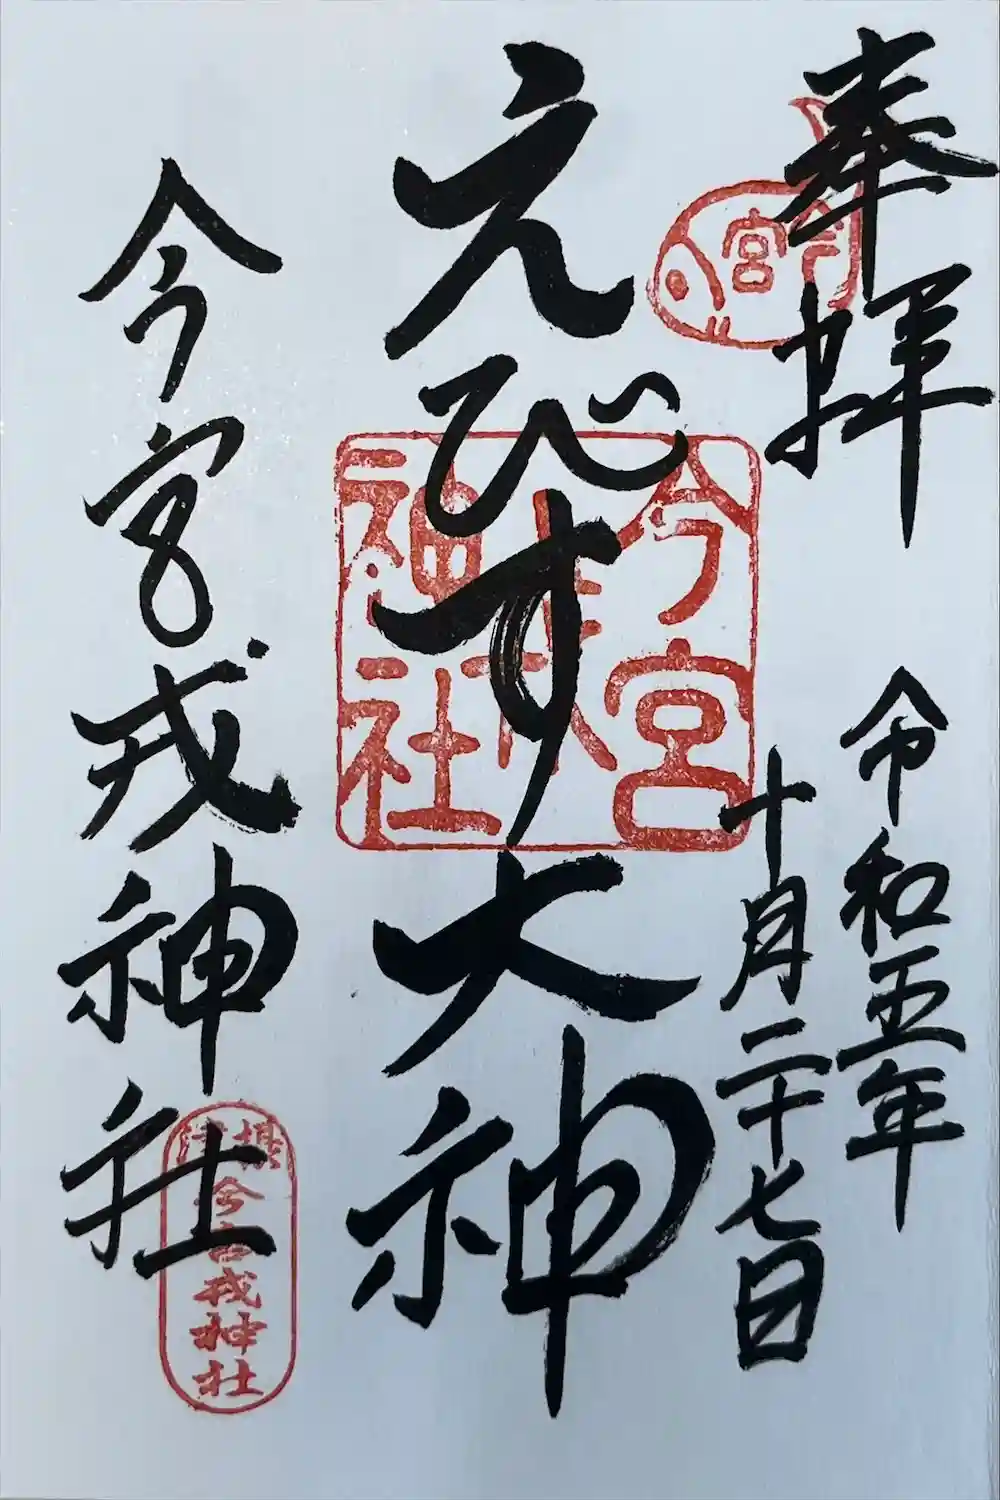 奉拝
今宮
令和五年
十月二十七日
えびす大神
今宮
戎
神社
今宮戎神社
摂津
今宮戎神社